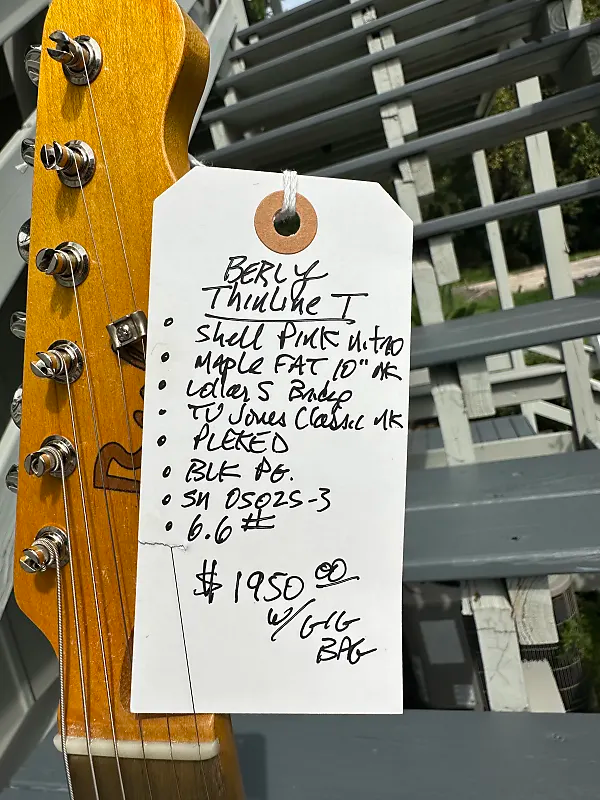 BERLY
Thinline T
• Shell Pink Nitro
• MAPLE FAT 10" NK
• Lollar S Bridge
• TV Jones Classic NK
• PLEKED
• BLK PG.
• SN 05025-3
• 6.6 #
$1950.00
w/ GIG
BAG